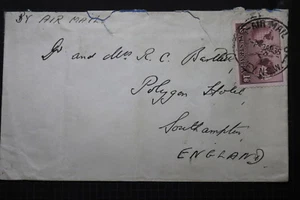 BY AIR MAIL
Dr and Mrs R. C. Bartlett,
Polygon Hotel,
Southampton
ENGLAND.
AIR MAIL